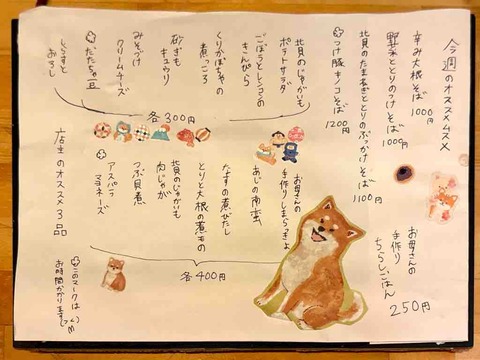 今週のオススメムスメ
辛み大根そば 1000円
野菜ととりのつけそば 1000円
北見のたまねぎととりのぶっかけそば 1100円
つけ豚キノコそば 1200円
北見のじゃがいも
ポテトサラダ
ごぼうとレンコンの
きんぴら
くりかぼちゃの
煮っころ
砂ぎも
キュウリ
みそづけ
クリームチーズ
だだちゃ豆
しらすと
おろし
各300円
お母さんの
手作り
ちらしごはん
250円
お母さんの
手作りしまらっきょ
あじの南蛮
なすの煮びたし
とりと大根の煮もの
北見のじゃがいも
肉じゃが
つぶ貝煮
アスパラ
マヨネーズ
各400円
店主のオススメ3品
このマークは
お時間かかります